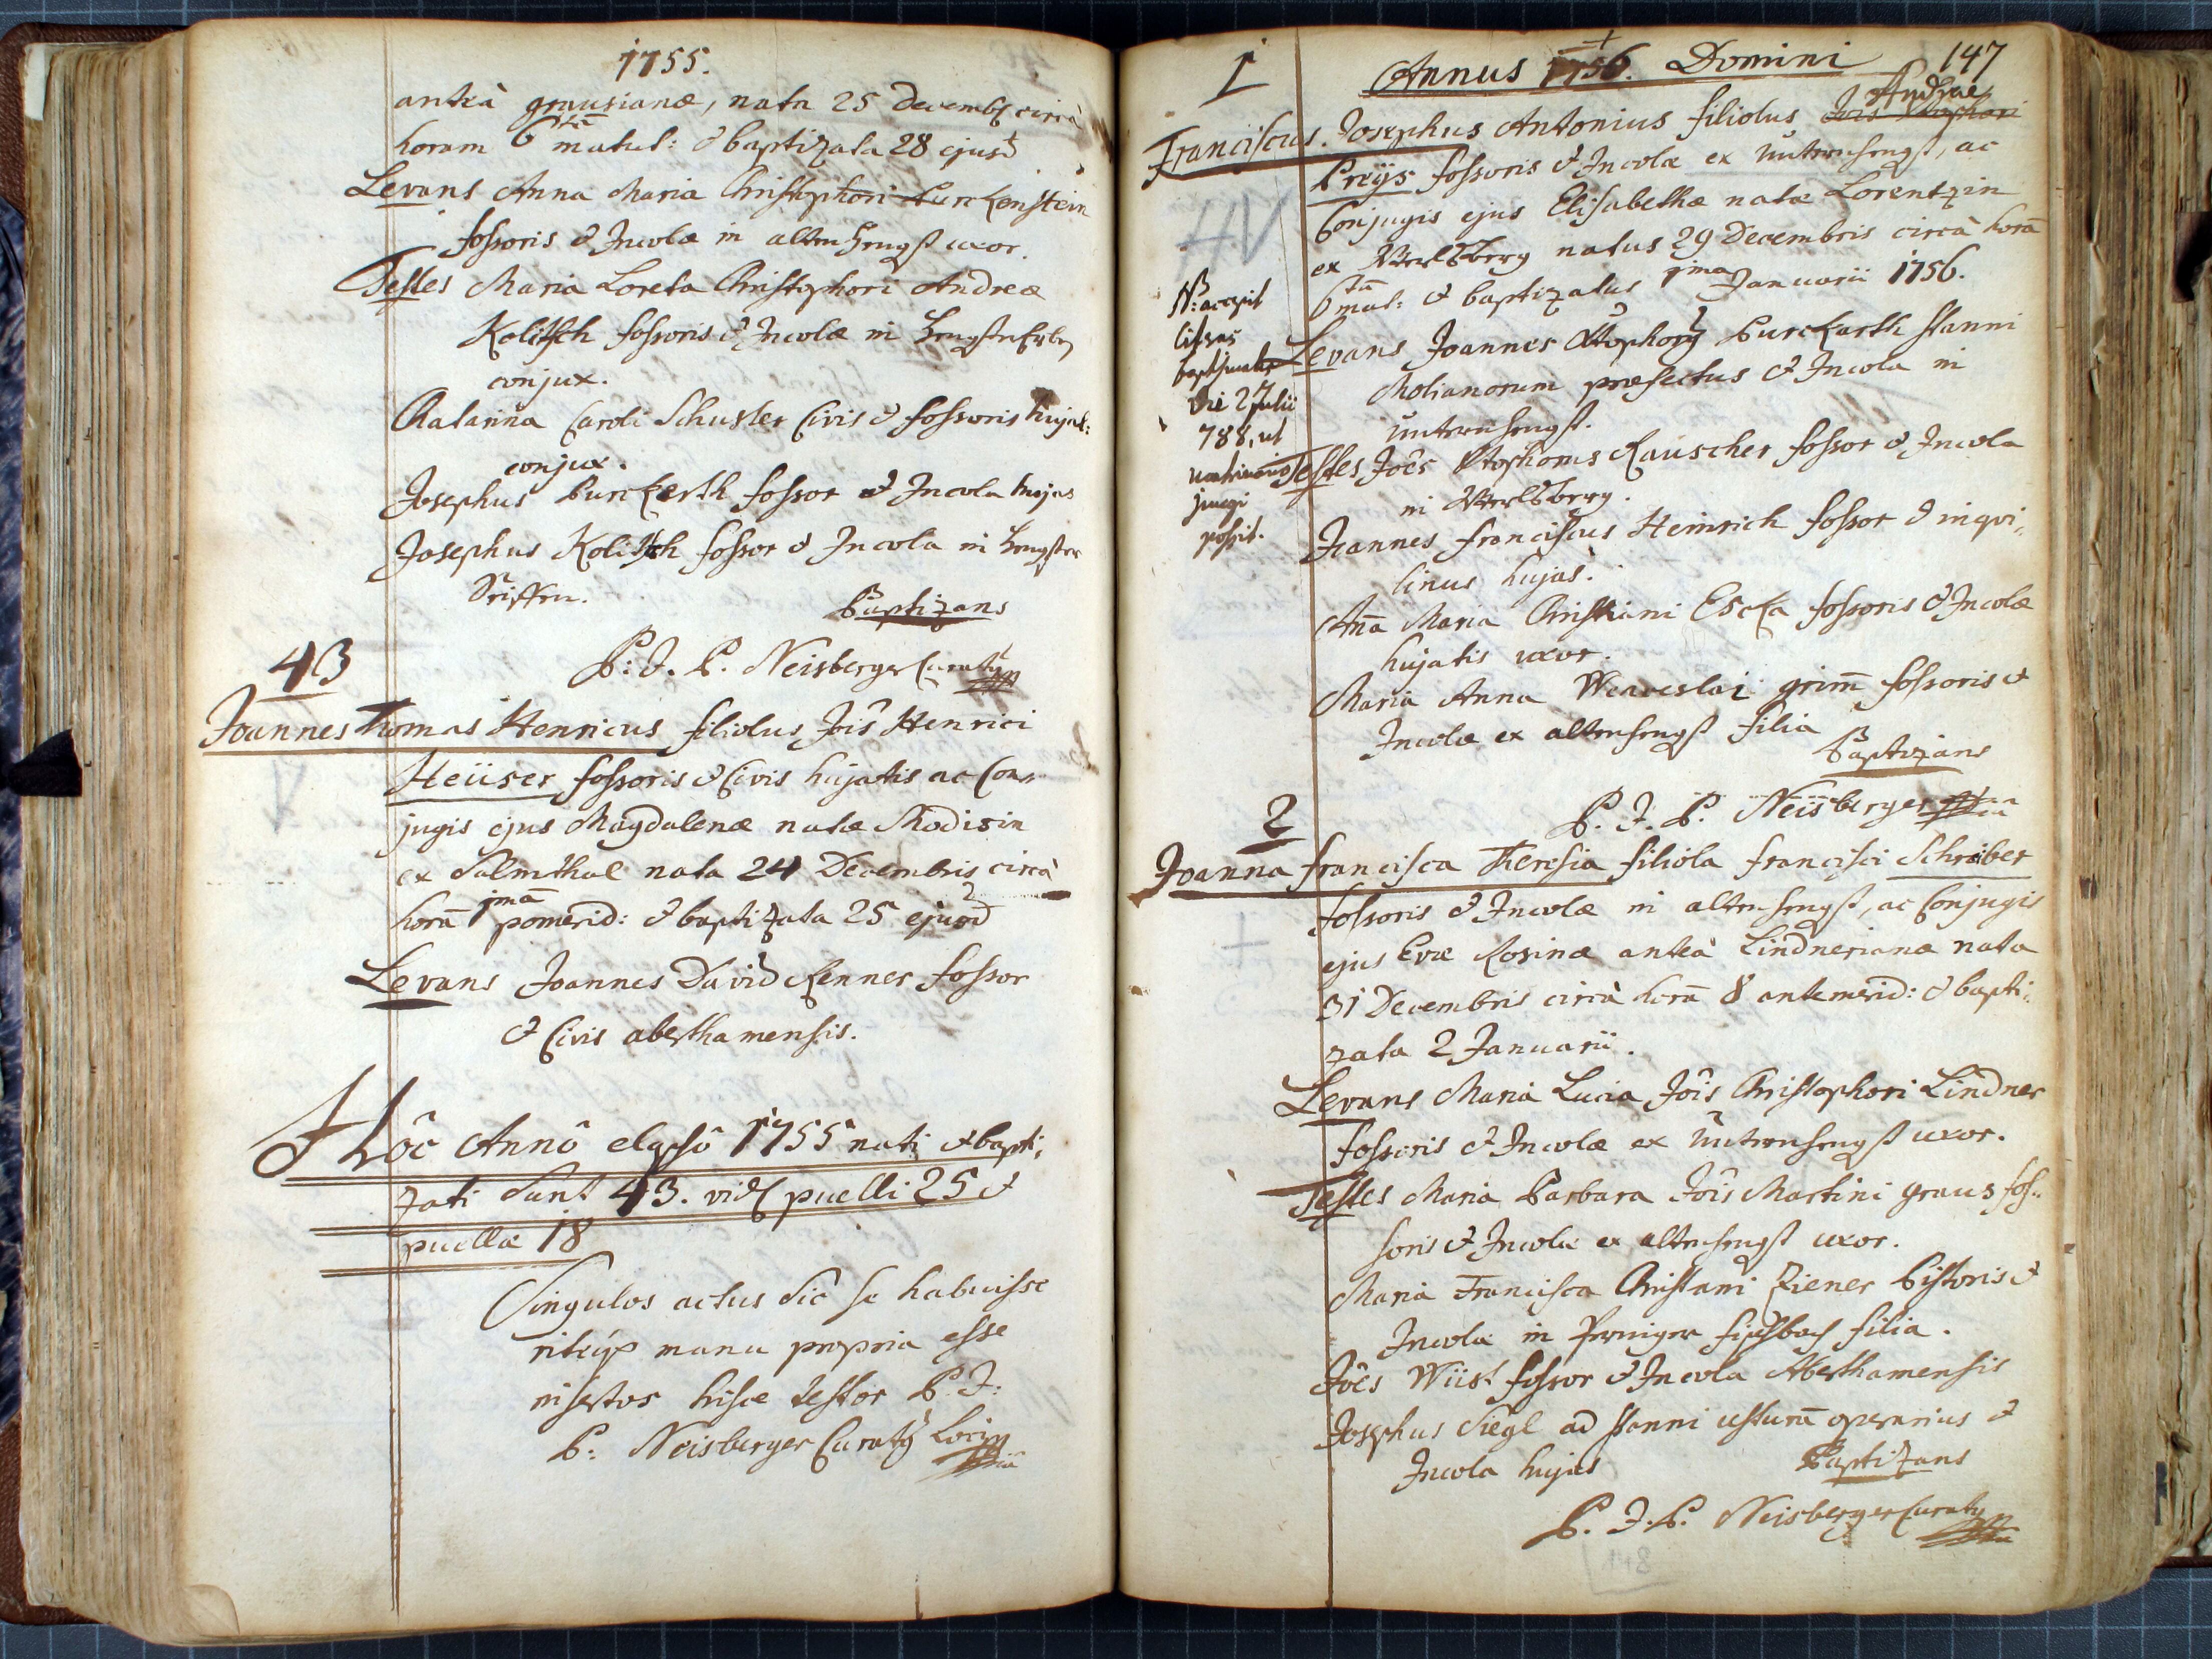 1755.
anteà grausianæ, nata 25 Decemb circà
horam 6tā matut: & baptizata 28 ejusd
Levans Anna Maria Christophori Purckenstein
fossoris & Incolæ in altenhengst uxor.
Testes Maria Loreta Christophori Andreæ
Kolitsch fossoris & Incolæ in
conjux.
Catarina Caroli Schuster Civis & fossoris hujat:
conjux.
Josephus Purckerth fossor & Incola hujas
Josephus Kolitsch fossor & Incola in
Baptizans
P: J. P. Neisberger Curatus
43
Joannes Thomas Henricus filiolus Jōis Henrici
Heüser fossoris & Civis hujatis ac Con-
jugis ejus Magdalenæ natæ Modisin
ex Salmthal nata 24 Decembris circà
horā 1mā pomerid: & baptizata 25 ejusd
Levans Joannes David Renner fossor
& Civis aberthamensis.
Hôc Annô elapsô 1755 nati & bapti,
zati Sunt 43. vid puelli 25 &
puellæ 18
Singulos actus Sic se habuisse
manu propria esse
insertos hisce testor P. J:
P: Neisberger Curatus Loci
147
1
Annus 1756. Domini
Andreæ
Franciscus Josephus Antonius filiolus
Preÿs fossoris & Incolæ ex ünternhengst, ac
Conjugis ejus Elisabethæ natæ Lorentzin
ex natus 29 Decembris circà horā
6tā mat: & baptizatus 1ma Januarii 1756.
NB: accepit
litteras
baptismales
die 2 Julii
788, ut
matrimonio
jungi
possit.
Levans Joannes Xstophorus Purckarth stanni
Molianorum præfectus & Incola in
ünternhengst.
Testes Joēs Xstophorus Rauscher fossor & Incola
in
Joannes Franciscus Heinrich fossor & inqvi,
linus hujas.
Aña Maria Christiani Escka fossoris & Incolæ
hujatis uxor.
Maria Anna Wenceslai grim̄ fossoris &
Incolæ ex altenhengst filia
Baptizans
P. J. P. Neisberger
2
Joanna Francisca Theresia filiola Francisci Schreiber
fossoris & Incolæ in altenhengst, ac Conjugis
ejus Evæ Rosinæ anteà Lindnerianæ nata
31 Decembris circà horā 8 antemerid: & bapti,
zata 2 Januarii.
Levans Maria Lucia Jōis Christophori Lindner
fossoris & Incolæ ex ünternhengst uxor.
Testes Maria Barbara Jōis Martini graus fos,
soris & Incolæ ex altenhengst uxor.
Maria Francisca Christiani Ziener Pistoris &
Incolæ in filia.
Joēs Wüst fossor & Incola Aberthamensis
Josephus Siegl ad stanni usturā operarius &
Incola hujas
Baptizans
P. J. P. Neisberger Curatus